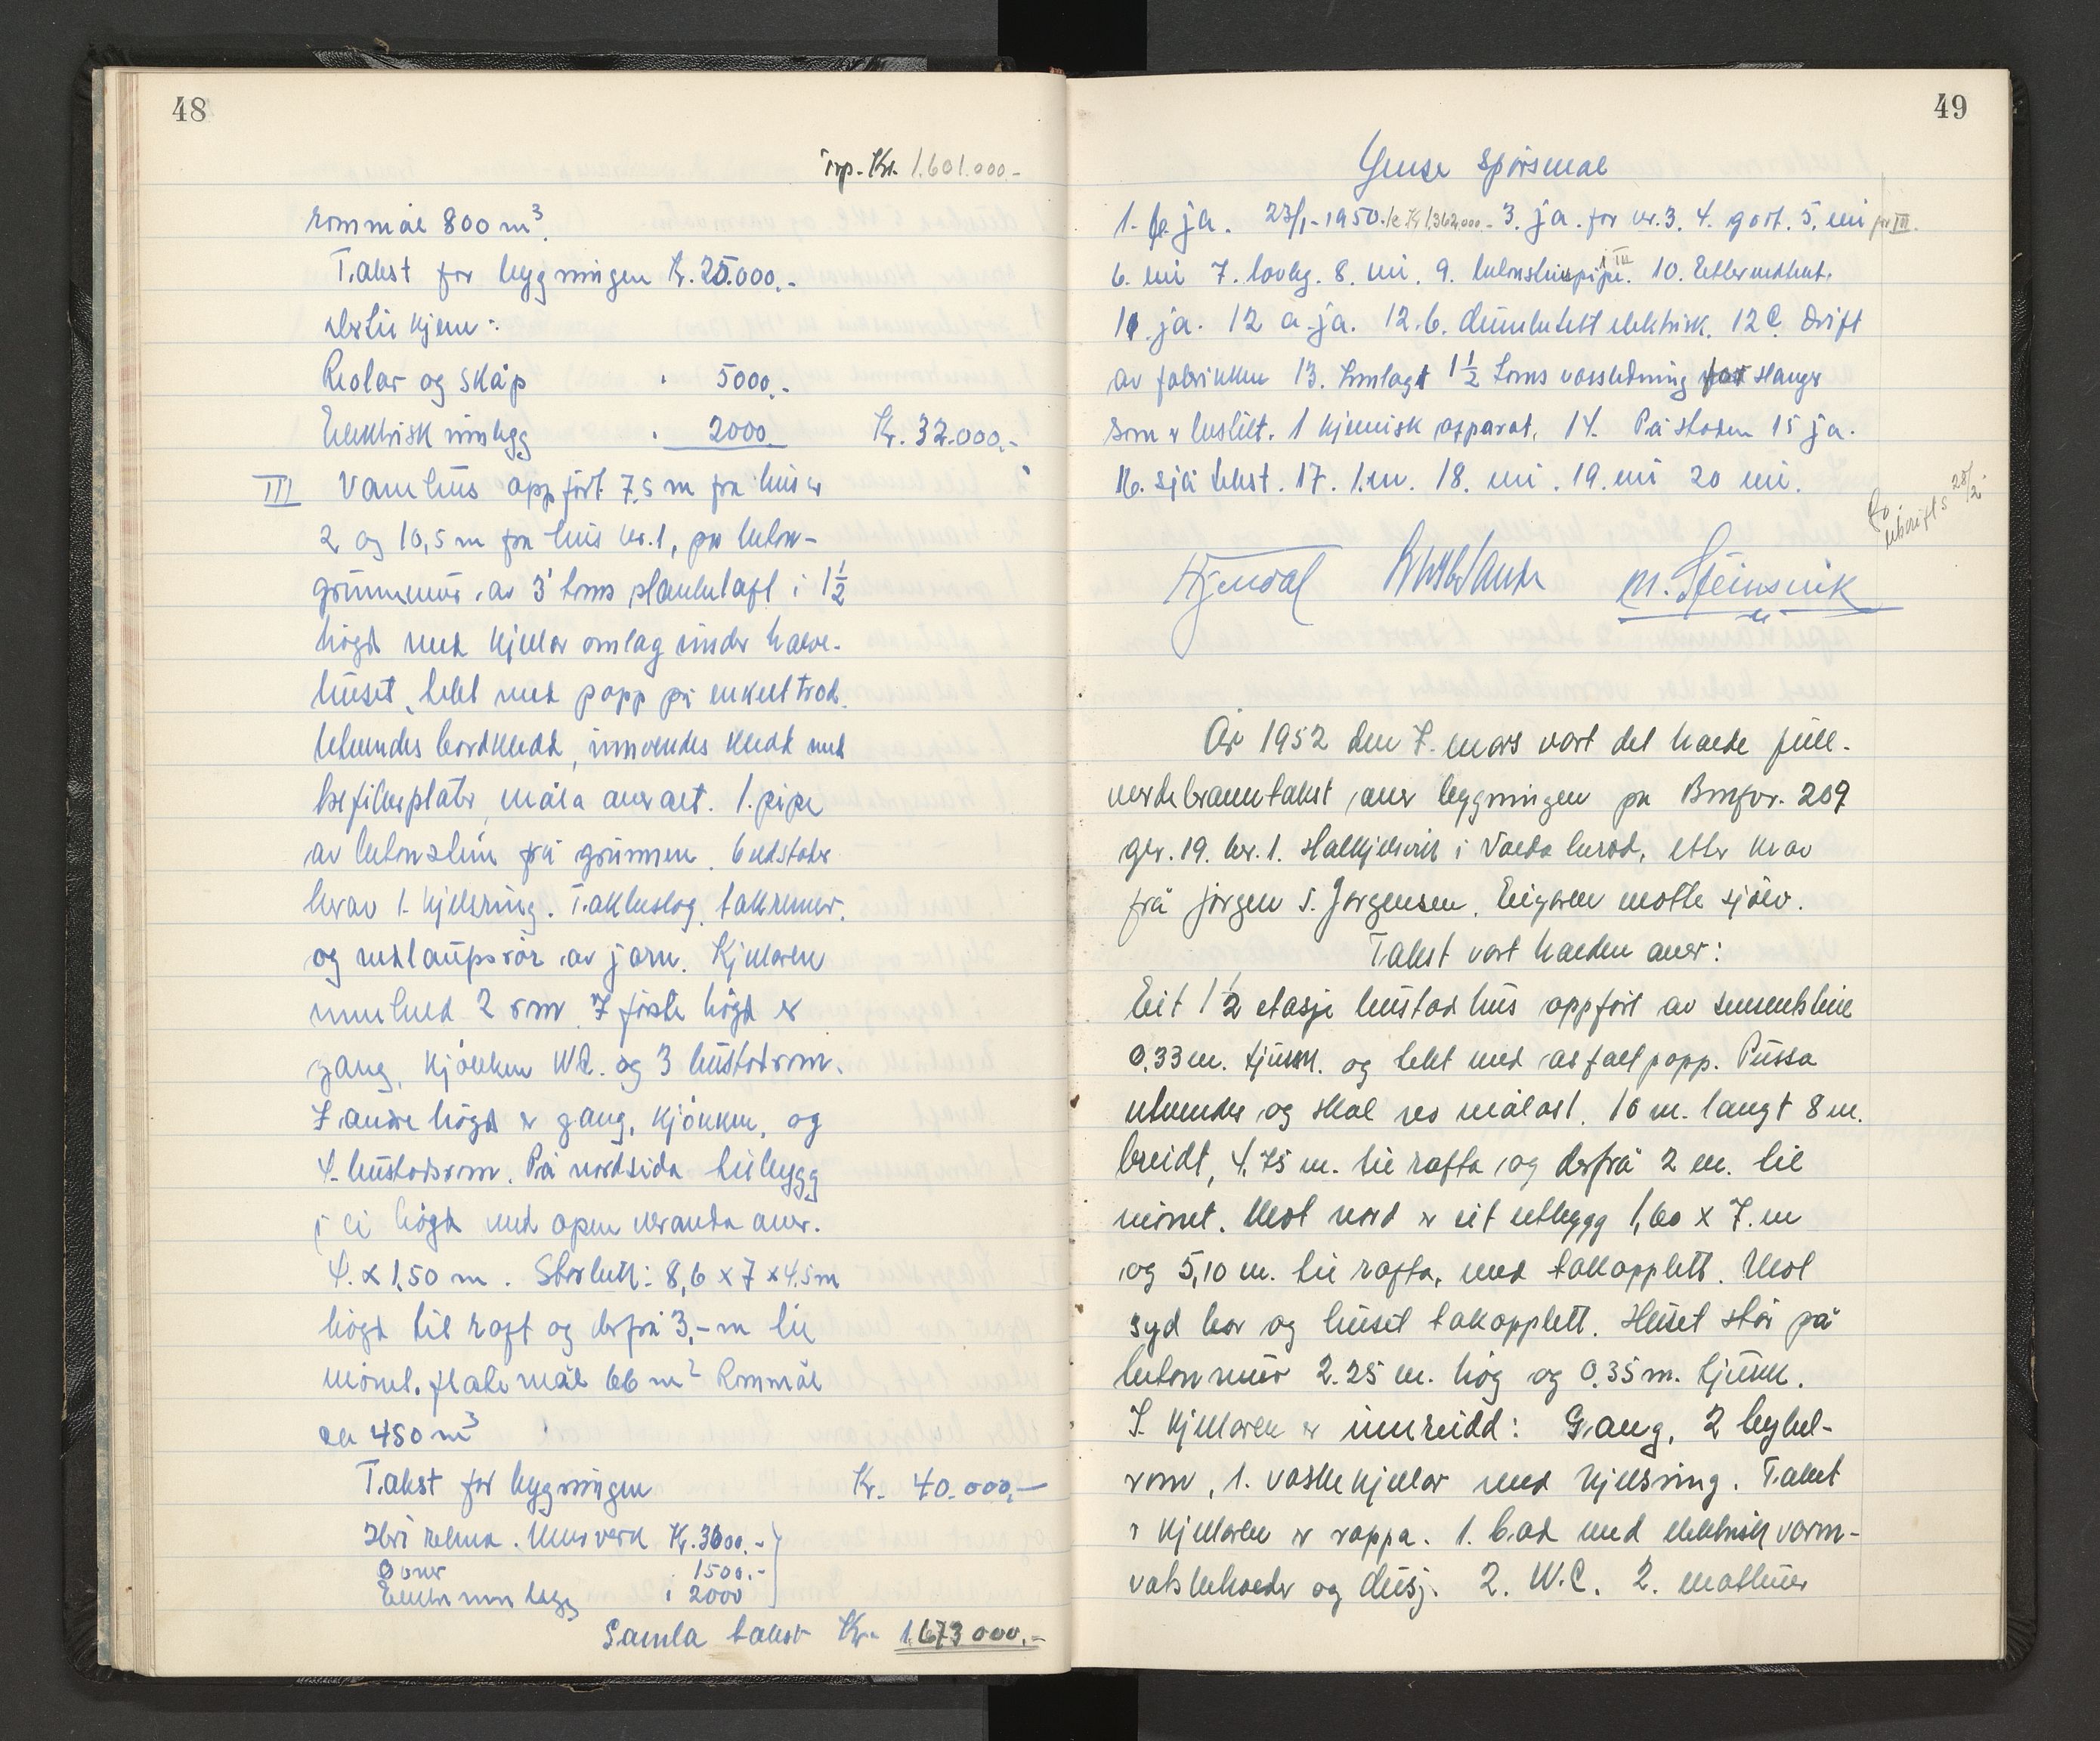 48
Trp. Kr. 1.601.000.-
rommål 800 m³.
Takst for bygningen Kr. 25.000.-
dertil kjem:
Reolar og skåp " 5000.-
Elektrisk innlegg " 2000. Kr. 32.000.-
III Vanehus oppført 7,5 m frå hus nr
2 og 10,5 m frå hus nr. 1, på beton-
grunnmur av 3" toms planketaft i 1½
högd med kjellar omlag under halve-
huset, tekt med papp på enkelt trod.
Utvendes bordkledd, innvendes kledd med
trefiberplater, måla overalt. 1. pipe
av betonstein frå grunnen. 6 eldstader
herav 1. kjelering. Takbeslag, takrenner.
og nedlaupsrör av jarn. Kjellaren
inneheld 2 rom. I fyrste högd er
gang, kjökken WC. og 3 bustadrom.
I andre högd er gang, kjökken, og
4. bustadrom. På nordsida tilbygg
i ei högd med open veranda over.
4. x 1,50 m. Storleik: 8,6 x 7 x 4,5 m
högd til raft og derfrå 3,- m til
mönet. flatemål 66 m² Rommål
ca 450 m³
Takst for bygningen Kr. 40.000,-
Heri rekna. Murverk Kr. 3600.-
Omnar " 1500.-
Elektr. innlegg " 2000
Samla takst Kr. 1.673 000.-
49
Ymse spörsmål
1. ja. 23/1-1950. Kr 1,362,000.- 3. ja. for nr. 3. 4. godt. 5. nei for III.
6. nei 7. lovleg. 8. nei. 9. betonsteinspipe. i III 10. Ettermidt.
11 ja. 12 a. ja. 12.b. elektrisk. 12 C. Drift
av fabrikken 13. Innlagt 1½ toms vassledning for slanger
som er bestilt. 1 kjemisk apparat. 14. På staden 15 ja.
16. sjå tekst. 17. 1. m. 18. nei. 19. nei 20 nei.
utskrift s 28/2
M. Steinsvik
År 1952 den 7. mars vart det halde full-
verdebranntakst over bygningen på Brnfnr. 209
gnr. 19. bnr. 1. Halkjelsvik i Volda herad, etter krav
frå Jørgen S. Jørgensen. Eigaren møtte sjølv.
Takst vart halden over:
Eit 1½ etasje bustadhus oppført av sementstein
0,33 m. tjukk. og tekt med asfaltpapp. Pussa
utvendes og skal ves målast. 10 m. langt 8 m.
breidt, 4.75 m. til rafta og derfrå 2 m. til
mönet. Mot nord er eit utbygg 1,60 x 7. m
og 5,10 m. til rafta, med takopplett. Mot
syd har og huset takopplett. Huset står på
betonmur 2.25 m. høg og 0.35 m. tjukk.
I kjellaren er innreidd: Gang, 2 hybel-
rom, 1. vaskekjellar med kjelsring. Taket
i kjellaren er rappa. 1. bad med elektrisk varm-
vatsbehaldar og dusj. 2. W.C. 2. matbuer